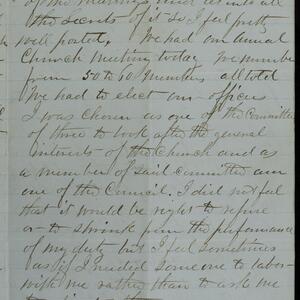 of the meetings and as into all
the secrets of it so I feel pretty
well posted. We had our Annual
Church Meeting today We number
from 50 to 60 Members all told
We had to elect our officers
I was chosen as one of the Committee
of three to look after the general
interests of the Church and as
a member of said committee am
one of the Council. I did not feel
that it would be right to refuse
or to shrink from the performance
of my duty but I feel sometimes
as if I needed someone to labor
with me rather than to ask me